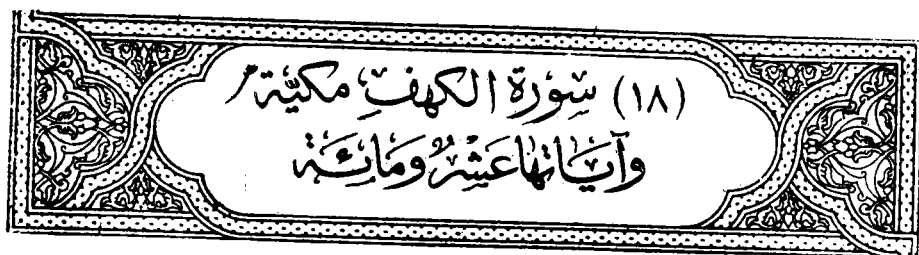 (١٨) سُورَةُ الكَهْفِ مَكِيَّةٌ
وَآيَاتُهَا عَشْرٌ وَمَائِة